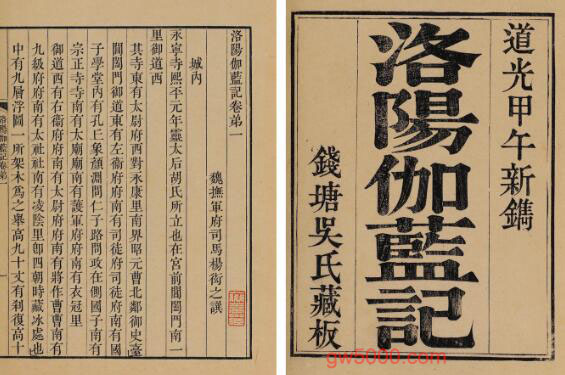 道光甲午新鐫
洛陽伽藍記
錢塘吳氏藏板
gw5000.com
洛陽伽藍記卷弟一
魏撫軍府司馬楊衒之譔
城內
永寧寺熙平元年靈太后胡氏所立也在宮前閶闔門南一
里御道西
其寺東有太尉府西對永康里南界昭元曹北鄰御史臺
閶闔門御道東有左衞府府南有司徒府司徒府南有國
子學堂內有孔丘象顏淵問仁子路問政在側國子南有
宗正寺寺南有太廟廟南有護軍府府南有衣冠里
御道西有右衞府府南有太尉府府南有將作曹曹南有
九級府府南有太社社南有凌陰里卽四朝時藏冰處也
中有九層浮圖一所架木爲之舉高九十丈有刹復高十
洛陽伽藍記卷弟一